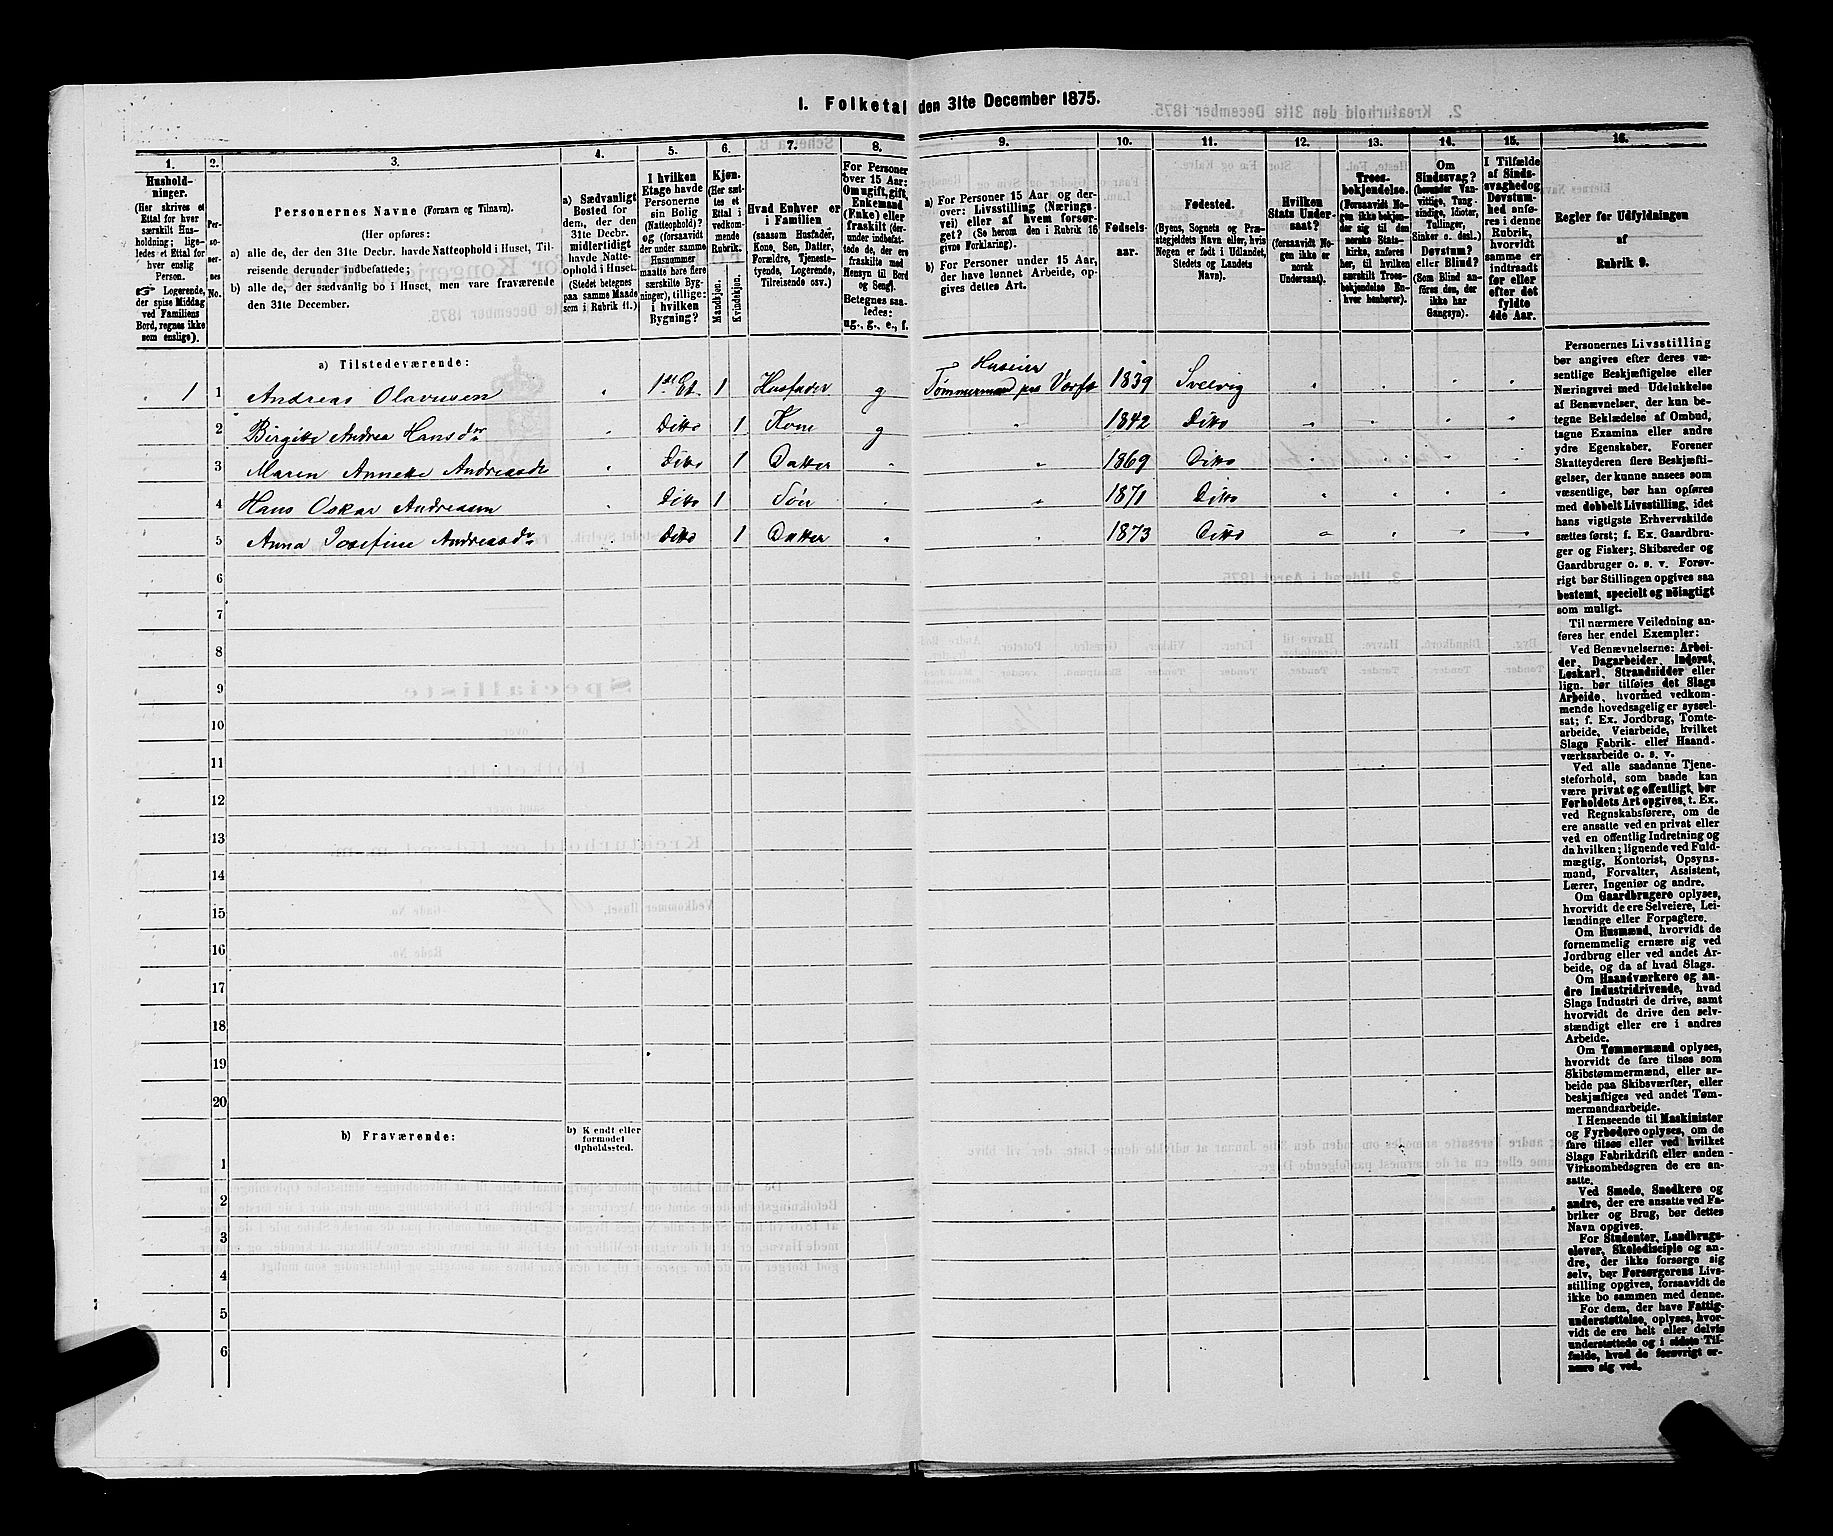 1. Folketal den 31te December 1875.
1.
2.
3.
4.
5.
6.
7.
8.
9.
10.
11.
12.
13.
14.
15.
16.
Hushold-
ninger.
(Her skrives et
Ettal for hver
særskilt Hus-
holdning; lige-
ledes et Ettal for
hver enslig
Person.
☞ Logerende,
der spise Middag
ved Familiens
Bord, regnes ikke
som enslige).
Per-
so-
ner-
nes
No.
Personernes Navne (Fornavn og Tilnavn).
(Her opføres:
a) alle de, der den 31te Decbr. havde Natteophold i Huset, Til-
reisende derunder indbefattede;
b) alle de, der sædvanlig bo i Huset, men vare fraværende
den 31te December.
a) Sædvanligt
Bosted for
dem, der den
31te Decbr.
midlertidigt
havde Natte-
ophold i Huset.
(Stedet betegnes
paa samme Maade
som i Rubrik 11.)
I hvilken
Etage havde
Personerne
sin Bolig
(Natteophold)?
og (forsaavidt
der under samme
Husnummer
maatte høre flere
særskilte Byg-
ninger), tillige:
i hvilken
Bygning?
Kjøn.
(Her sæt-
tes et
Ettal i
vedkom-
mende
Rubrik.
Mandkjøn.
Kvindekjøn.
Hvad Enhver er
i Familien
(saasom Husfader,
Kone, Søn, Datter,
Forældre, Tjeneste-
tyende, Logerende,
Tilreisende osv.)
For Personer
over 15 Aar:
Om ugift, gift,
Enkemand
(Enke) eller
fraskilt (der-
under indbefat-
tede de, der ere
fraskilte med
Hensyn til Bord
og Seng).
Betegnes saa-
ledes:
ug., g., e., f.
a) For Personer 15 Aar og der-
over: Livsstilling (Nærings-
vei) eller af hvem forsør-
get? (Se herom den i Rubrik 16
givne Forklaring).
b) For Personer under 15 Aar,
der have lønnet Arbeide, op-
gives dettes Art.
Fødsels-
aar.
Fødested.
(Byens, Sognets og Præ-
stegjeldets Navn eller, hvis
Nogen er født i Udlandet,
Stedets og Landets
Navn).
Hvilken
Stats Under-
saat?
(forsaavidt No-
gen ikke er
norsk
Undersaat).
Troes-
bekjendelse.
(Forsaavidt No-
gen ikke bekjen-
der sig til den
norske Stats-
kirke, anføres
her, til hvilken
særskilt Troes-
bekjendelse En-
hver henhører).
Om
Sindssvag?
(herunder Van-
vittige, Tung-
sindige, Idioter,
Tullinger,
Sinker o. desl.)
Døvstum?
eller Blind?
(Som Blind an-
føres den, der
ikke har
Gangsyn).
I Tilfælde
af Sinds-
svaghed og
Døvstum-
hed anfø-
res i denne
Rubrik,
hvorvidt
samme er
indtraadt
før eller
efter det
fyldte
4de Aar.
Regler for Udfyldningen
af
Rubrik 9.
a) Tilstedeværende:
1 1 Andreas Olavesen " 1ste Et. 1 Husfader g Huseier Tømmermand paa Værft 1839 Svelvig " " " "
2 Birgitte Andrea Hansdr " Ditto 1 Kone g " 1842 Ditto " " " "
3 Maren Annette Andreasdr " Ditto 1 Datter " " 1869 Ditto " " " "
4 Hans Oskar Andreasen " Ditto 1 Søn " " 1871 Ditto " " " "
5 Anna Josefine Andreasdr " Ditto 1 Datter " " 1873 Ditto " " " "
6
7
8
9
10
11
12
13
14
15
16
17
18
19
20
b) Fraværende:
b) Kjendt eller
formodet
Opholdssted.
1
2
3
4
5
6
Personernes Livsstilling
bør angives efter deres væ-
sentlige Beskjæftigelse eller
Næringsvei med Udelukkelse
af Benævnelser, der kun be-
tegne Beklædelse af Ombud,
tagne Examina eller andre
ydre Egenskaber. Forener
Skatteyderen flere Beskjæfti-
gelser, der kunne ansees som
væsentlige, bør han opføres
med dobbelt Livsstilling, idet
hans vigtigste Erhvervskilde
sættes først; f. Ex. Gaardbru-
ger og Fisker; Skibsreder og
Gaardbruger o. s. v. Forøv-
rigt bør Stillingen opgives saa
bestemt, specielt og nöiagtigt
som muligt.
Til nærmere Veiledning an-
føres her endel Exempler:
Ved Benævnelserne: Arbei-
der, Dagarbeider, Inderst,
Løskarl, Strandsidder eller
lign. bør tilføies det Slags
Arbeide, hvormed vedkom-
mende hovedsagelig er syssel-
sat; f. Ex. Jordbrug, Tomte-
arbeide, Veiarbeide, hvilket
Slags Fabrik- eller Haand-
værksarbeide o. s. v.
Ved alle saadanne Tjene-
steforhold, som baade kan
være privat og offentligt, bør
Forholdets Art opgives, t. Ex.
ved Regnskabsførere, om de
ere ansatte ved en privat eller
ved en offentlig Indretning og
da hvilken; lignende ved Fuld-
mægtig, Kontorist, Opsyns-
mand, Forvalter, Assistent,
Lærer, Ingeniør og andre.
Om Gaardbrugere oplyses,
hvorvidt de ere Selveiere, Lei-
lændinge eller Forpagtere.
Om Husmænd, hvorvidt de
fornemmelig ernære sig ved
Jordbrug eller ved andet Ar-
beide, og da af hvad Slags.
Om Haandværkere og an-
dre Industridrivende, hvad
Slags Industri de drive, samt
hvorvidt de drive den selv-
stændigt eller ere i andres
Arbeide.
Om Tømmermænd oplyses,
hvorvidt de fare tilsøs som
Skibstømmermænd, eller ar-
beide paa Skibsværfter, eller
beskjæftiges ved andet Tøm-
mermandsarbeide.
I Henseende til Maskinister
og Fyrbødere oplyses, om de
fare tilsøs eller ved hvilket
Slags Fabrikdrift eller anden
Virksomhedsgren de ere an-
satte.
Ved Smede, Snedkere og
andre, der ere ansatte ved Fa-
briker og Brug, bør dettes
Navn opgives.
For Studenter, Landbrugs-
elever, Skoledisciple og an-
dre, der ikke forsørge sig
selv, bør Forsørgerens Livs-
stilling opgives, forsaavidt de
ikke bo sammen med denne.
For dem, der have Fattig-
understøttelse, oplyses, hvor-
vidt de ere helt eller delvis
understøttede og i sidste Til-
fælde, hvad de forøvrigt er-
nære sig ved.